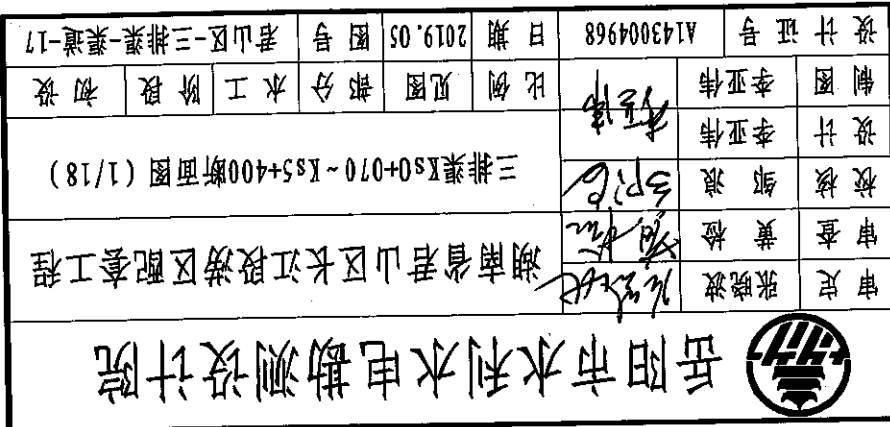 岳阳市水利水电勘测设计院
审定 张晓波 湖南省君山区长江段涝区配套工程
审查 黄检
校核 邹浪 三排渠Ks0+070~Ks5+400断面图(1/18)
设计 李亚伟
制图 李亚伟 比例 见图 部分 水工 阶段 初设
设计证号 A143004968 日期 2019.05 图号 君山区-三排渠-渠道-17